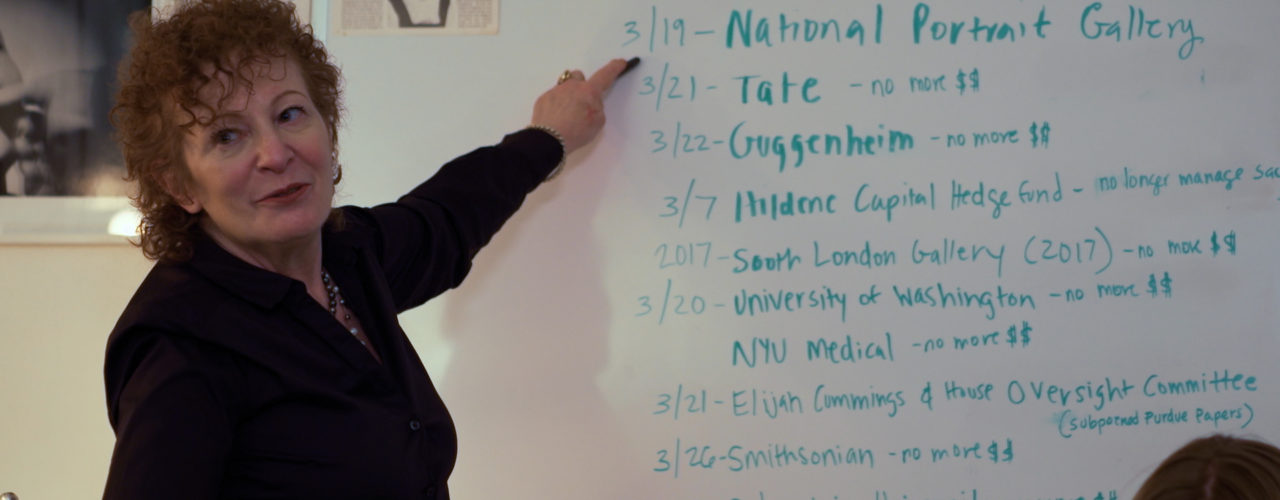 3/19 - National Portrait Gallery
3/21 - Tate - no more $$
3/22 - Guggenheim - no more $$
3/7 Hildene Capital Hedge Fund - no longer manage
2017 - South London Gallery (2017) - no more $$
3/20 - University of Washington - no more $$
NYU Medical - no more $$
3/21 - Elijah Cummings & House Oversight Committee
(subpoenaed Purdue Papers)
3/26 - Smithsonian - no more $$